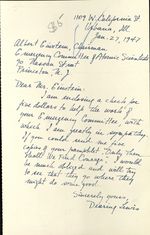 1109 W. California St
Urbana, Ill.
Jan. 27, 1947
Albert Einstein, Chairman
Emergency Committee of Atomic Scientists
90 Nassau Street
Princeton, N. J.
Dear Mr. Einstein:
I am enclosing a check for
five dollars to help the work of
your Emergency Committee, with
which I am greatly in sympathy.
If you could send me five
copies of your pamphlet, "Only Then
Shall We Find Courage" I would
be much obliged and will try
to see that they go where they
might do some good.
Sincerely yours,
Dearing Lewis